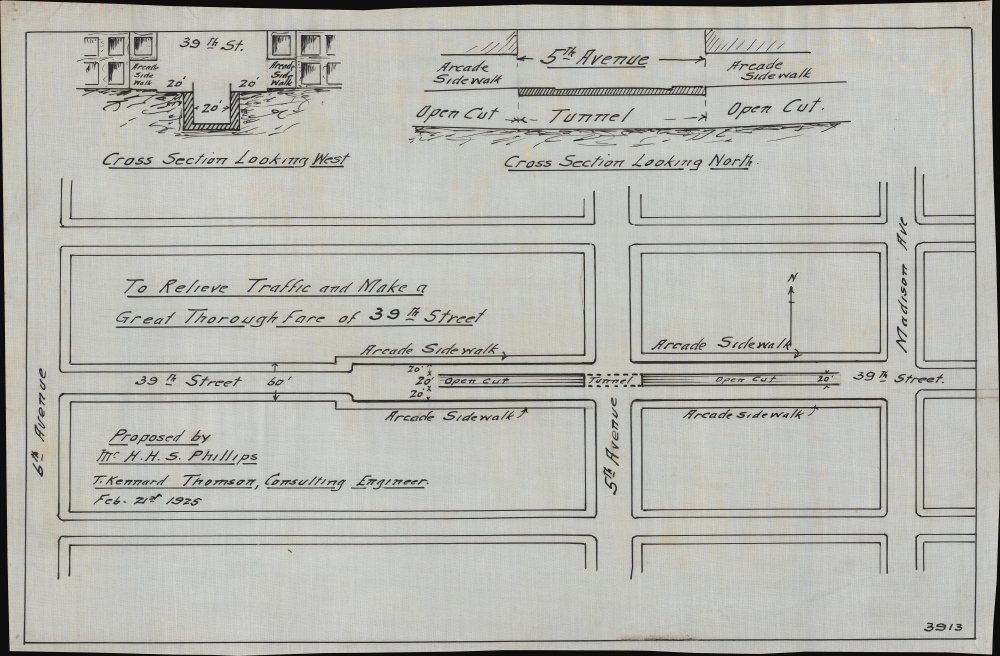 39 Th St.
Arcade
Side
Walk
Arcade
Side
Walk
20' 20'
20'
Cross Section Looking West
5Th Avenue
Arcade
Sidewalk
Arcade
Sidewalk
Open Cut Tunnel Open Cut.
Cross Section Looking North.
Madison Ave
To Relieve Traffic and Make a
Great Thorough Fare of 39 Th Street
N
Arcade Sidewalk
Arcade Sidewalk
39 Th Street 60'
20'
20'
20'
Open Cut Tunnel Open Cut 20' 39 Th Street.
Arcade Sidewalk
Arcade Sidewalk
6Th Avenue
5Th Avenue
Proposed by
H.H.S. Phillips
T. Kennard Thomson, Consulting Engineer.
Feb. 21st 1925
3913